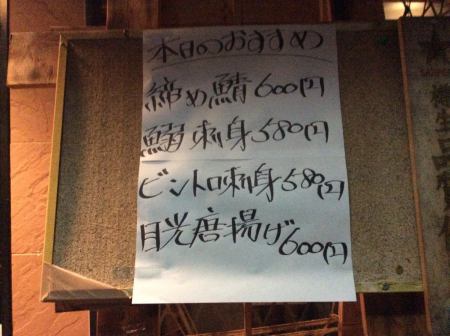 本日のおすすめ
締め鯖600円
鰯刺身580円
ビントロ刺身580円
目光唐揚げ600円